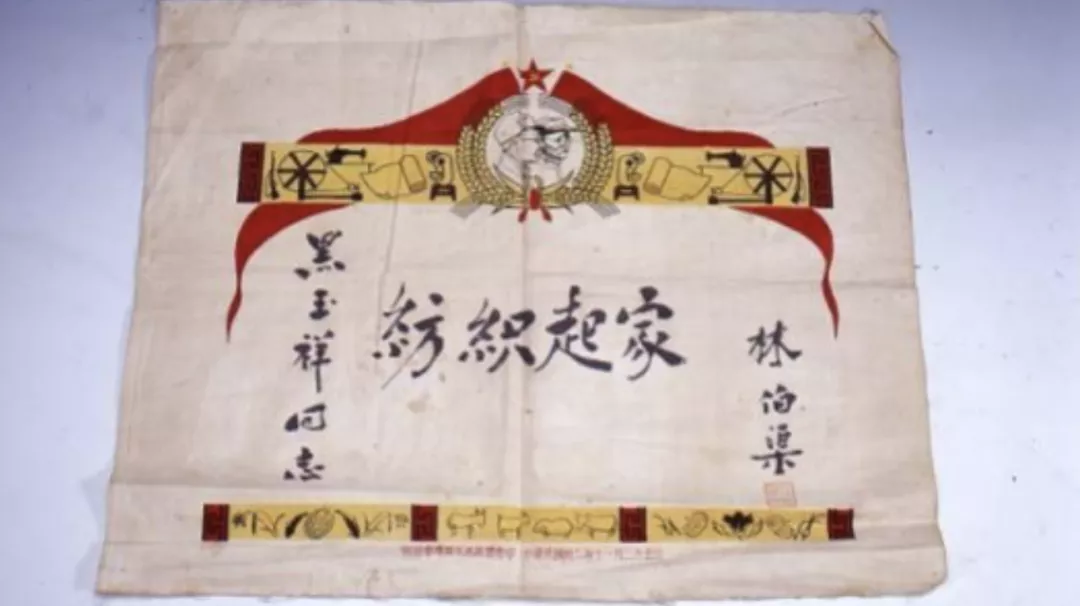 黑玉祥同志
紡織起家
林伯渠